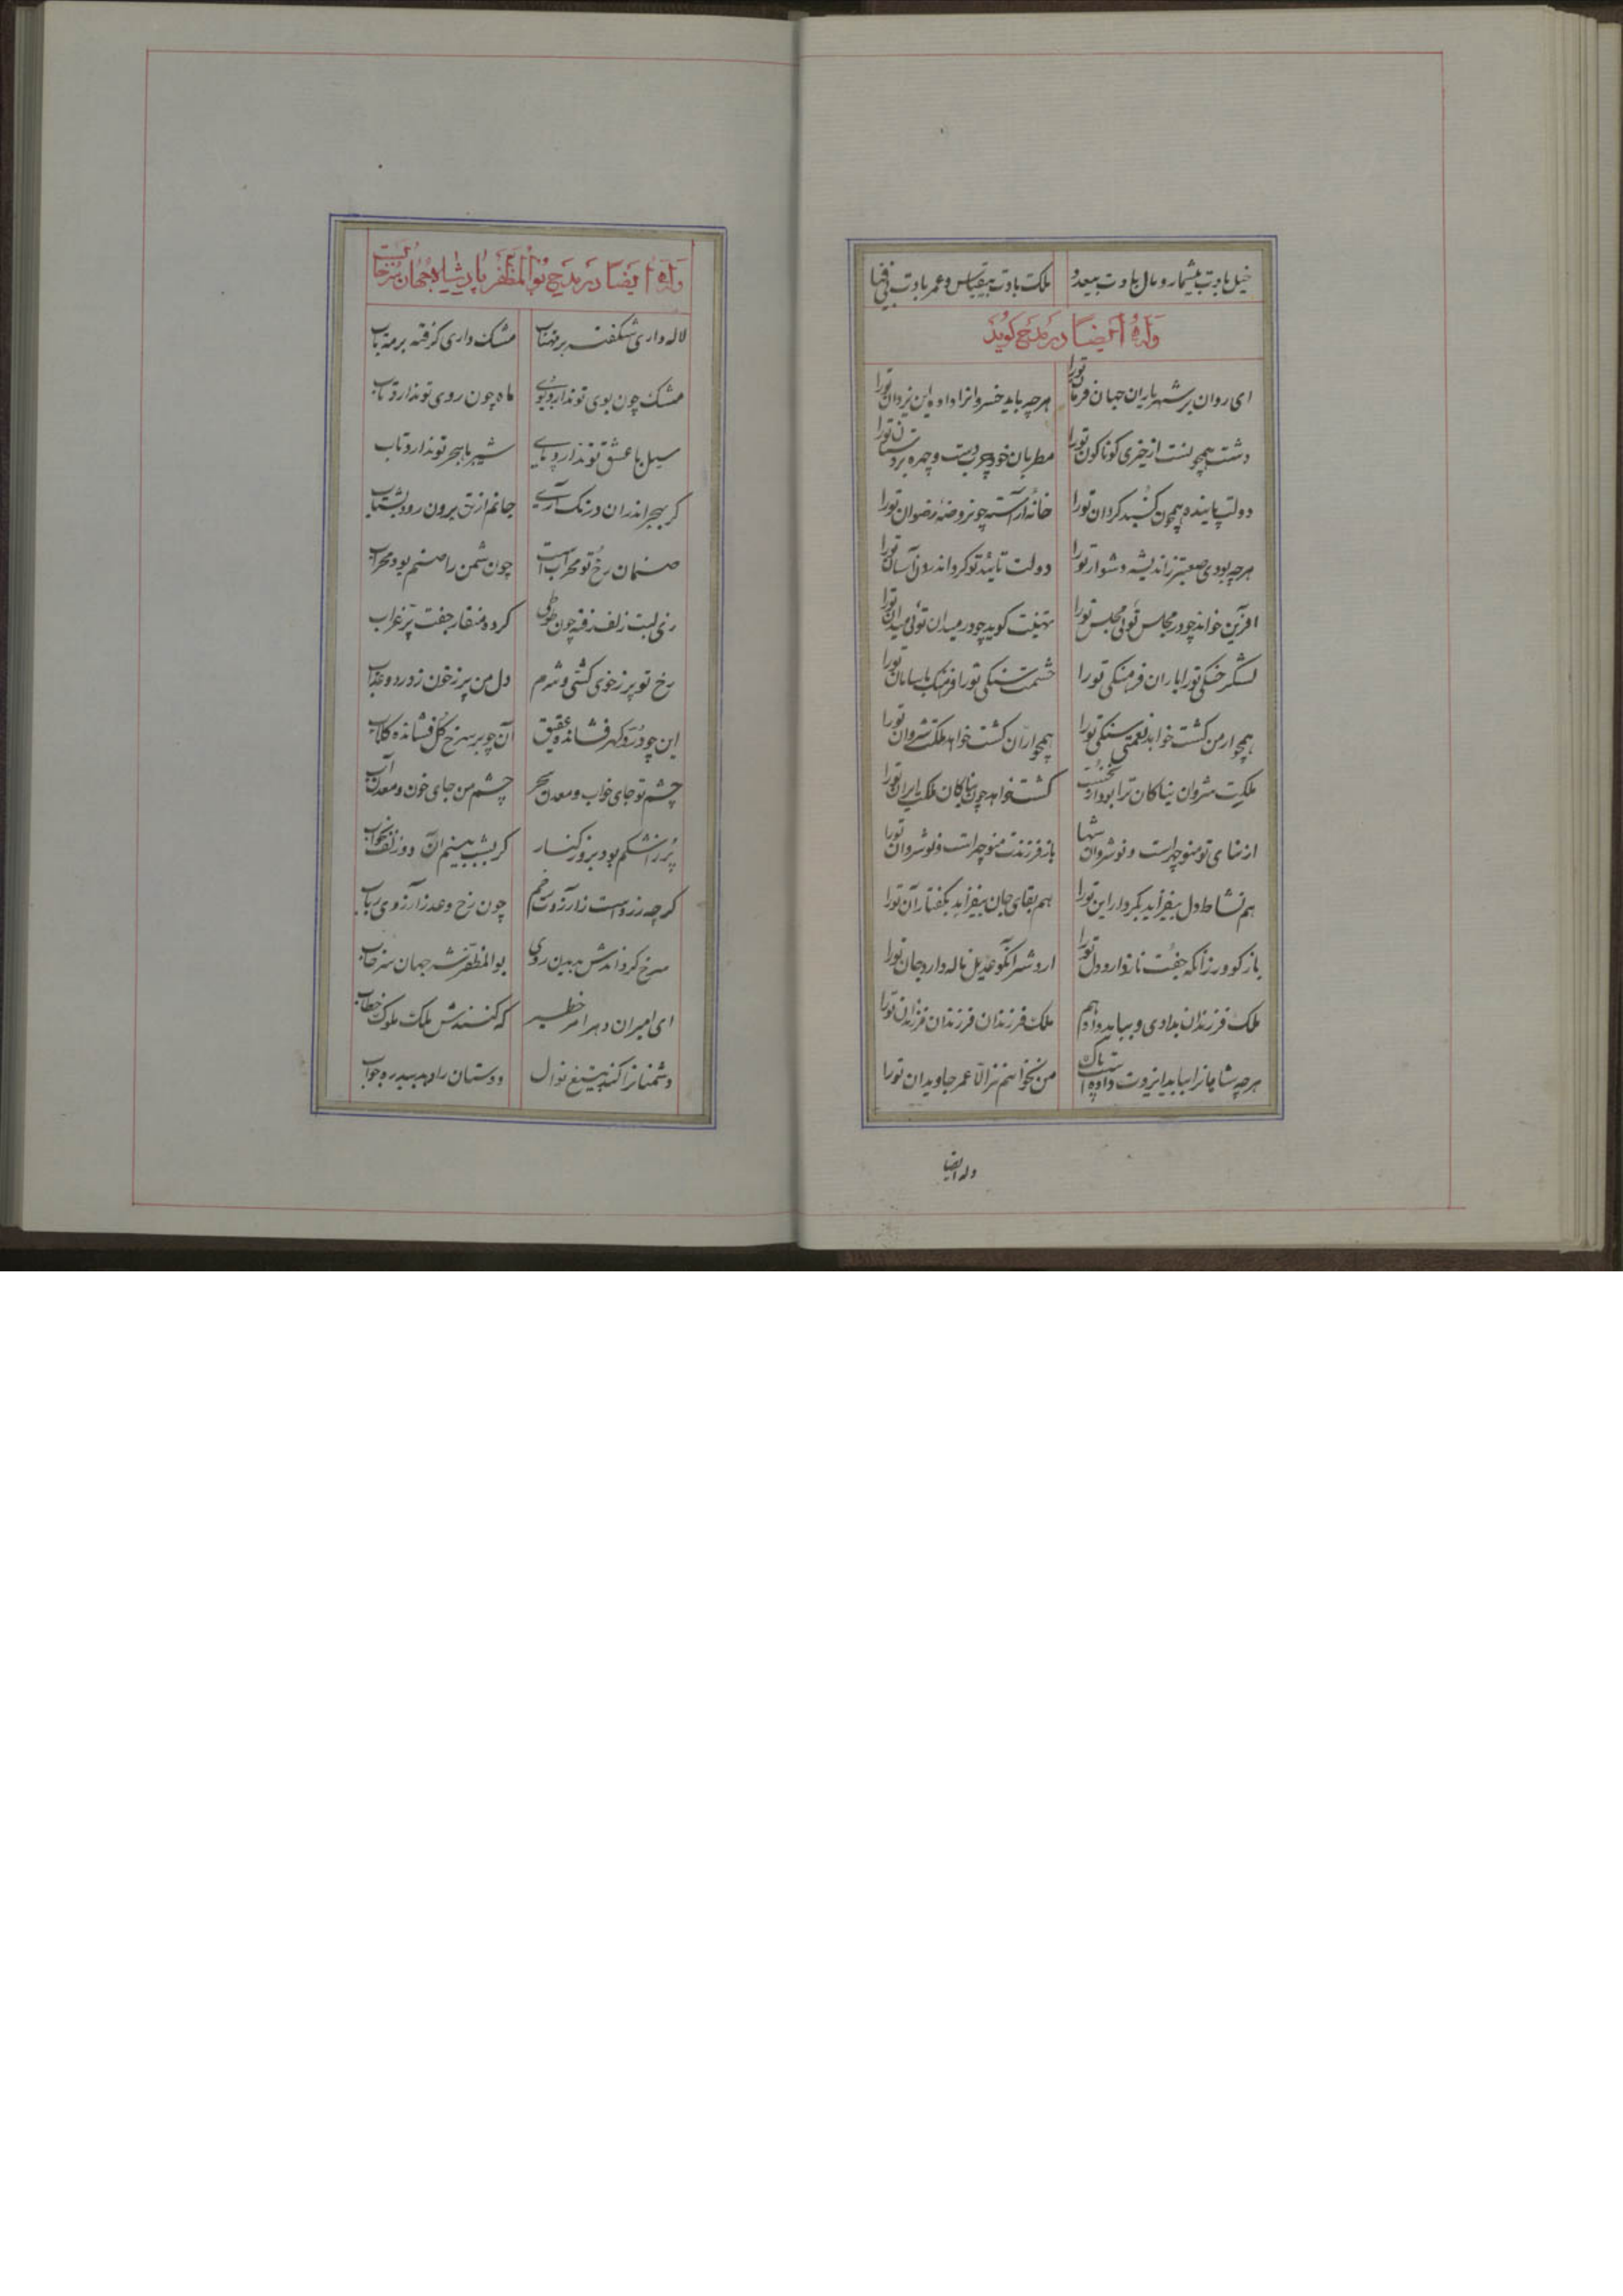 خیل بادت بیشمار و مال بادت بیعدد ملکت بادت بیقیاس و عمر بادت بی فنا
وله ایضا در مدح کوید
ای روان بر شهریاران جهان فرمان تورا هرچه باید خسروانرا داده این یزدان تورا
دشت همچو نست از خیری کوناکون تورا مطربان خود چرب دست و چهره بر دستان تورا
دولت پاینده همچون کنبد کردان تورا خانهٔ آراسته چونروضهٔ رضوان تورا
هرچه بودی صعبتر زاندیشه دشوار تورا دولت تائید تو کرد اندر و آسان تورا
افرین خواند چو در مجلس توئی مجلس تورا تهنیت کوید چو در میدان توئی میدان تورا
لشکر خشکی تورا باران فرهنکی تورا حشمت سنکی تورا فرهنک باسامان تورا
همچو ارمن کشت خواهد نعمتی سنکی تورا همچو اران کشت خواهد ملکت شروان تورا
ملکت شروان نیاکان ترا بود از نخست کشت خواهد چون نیاکان ملکت ایران تورا
از نیای تو منوچهر است و نوشروان شها باز فرزندت منوچهر است و نوشروان تورا
هم نشاط دل بیفزاید بکردار این تورا هم بقای جان بیفزاید بکفتار آن تورا
باز کو ورزانکه جفت ناز دارد دل تورا اردشیر آنکو عدیل ناله دارد جان تورا
ملک فرزندان بدادی و بباید داد هم ملک فرزندان فرزندان فرزندان تورا
هرچه شاهانرا بباید ایزدت داده است پاک من نخواهم نیز الا عمر جاویدان تورا
وله ایضا
وله ایضا در مدح بوالمظفر پادشاه جهان سرخاب است
لاله داری شکفته بر مهتاب مشک داری کرفته بر مه تاب
مشک چون بوی تو ندارد بوی ماه چون روی تو ندارد تاب
سیل با عشق تو ندارد پای شیر با هجر تو ندارد تاب
کر بهجر اندران درنک آری جانم از تن برون رود بشتاب
صنمان رخ تو محراب است چون شمن را صنم بود محراب
زی لبت زلف رفته چون طوطی کرده منقار جفت پر غراب
رخ تو پر ز خوی کشی و شرم دل من پر ز خون ز درد و عذاب
این چو در و کهر فشانده عقیق آن چو بر سرخ کل فشانده کلاب
چشم تو جای خواب و معدن سحر چشم من جای خون و معدن آب
پر ز اشکم بود بروز کنار کر بشب بینم آن دو زلف بخواب
کرچه زرد است زار زوت رخم چون رخ وعد زارزوی رباب
سرخ کرداندش بدیدن روی بوالمظفر شه جهان سرخاب
ای امیران دهر امر خطیر که کنندش ملک ملوک خطاب
دشمنانرا کند بتیغ نوال دوستان را دهد ببدره جواب